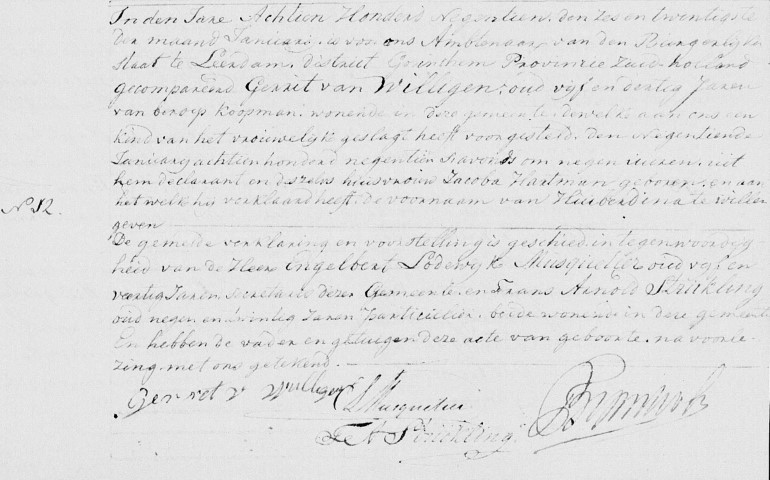 In den Jare Achtien Honderd Negentien, den zes en twentigste
der maand Januarij, is voor ons Ambtenaar van den Burgerlijke
staat te Leerdam, district Gorinchem Provincie Zuid-holland
gecompareerd Gerrit van Willigen, oud vijf en dertig Jaren
van beroep koopman, wonende in deze gemeente, dewelke aan ons een
kind van het vrouwelijke geslagt heeft voorgesteld, den Negentiende
Januarij achtien honderd negentien s'avonds om negen uuren, uit
hem declarant en deszelfs huisvrouw Jacoba Hartman geboren, en aan
N°. 12. het welk hij verklaard heeft, de voornaam van Huiberdina te willen
geven
De gemelde verklaring en voorstelling is geschied, in tegenwoordig-
heid van de Heer Engelbert Lodewijk Musquetier oud vijf en
veertig Jaren, secretaris dezer Gemeente, en Frans Arnold Strikling
oud negen en twintig Jaren Particulier, beide wonende in deze gemeente
En hebben de vader en getuigen deze acte van geboorte, na voorle-
zing met ons getekend.
Gerrot v Willigen
Musquetier
F A Strickling